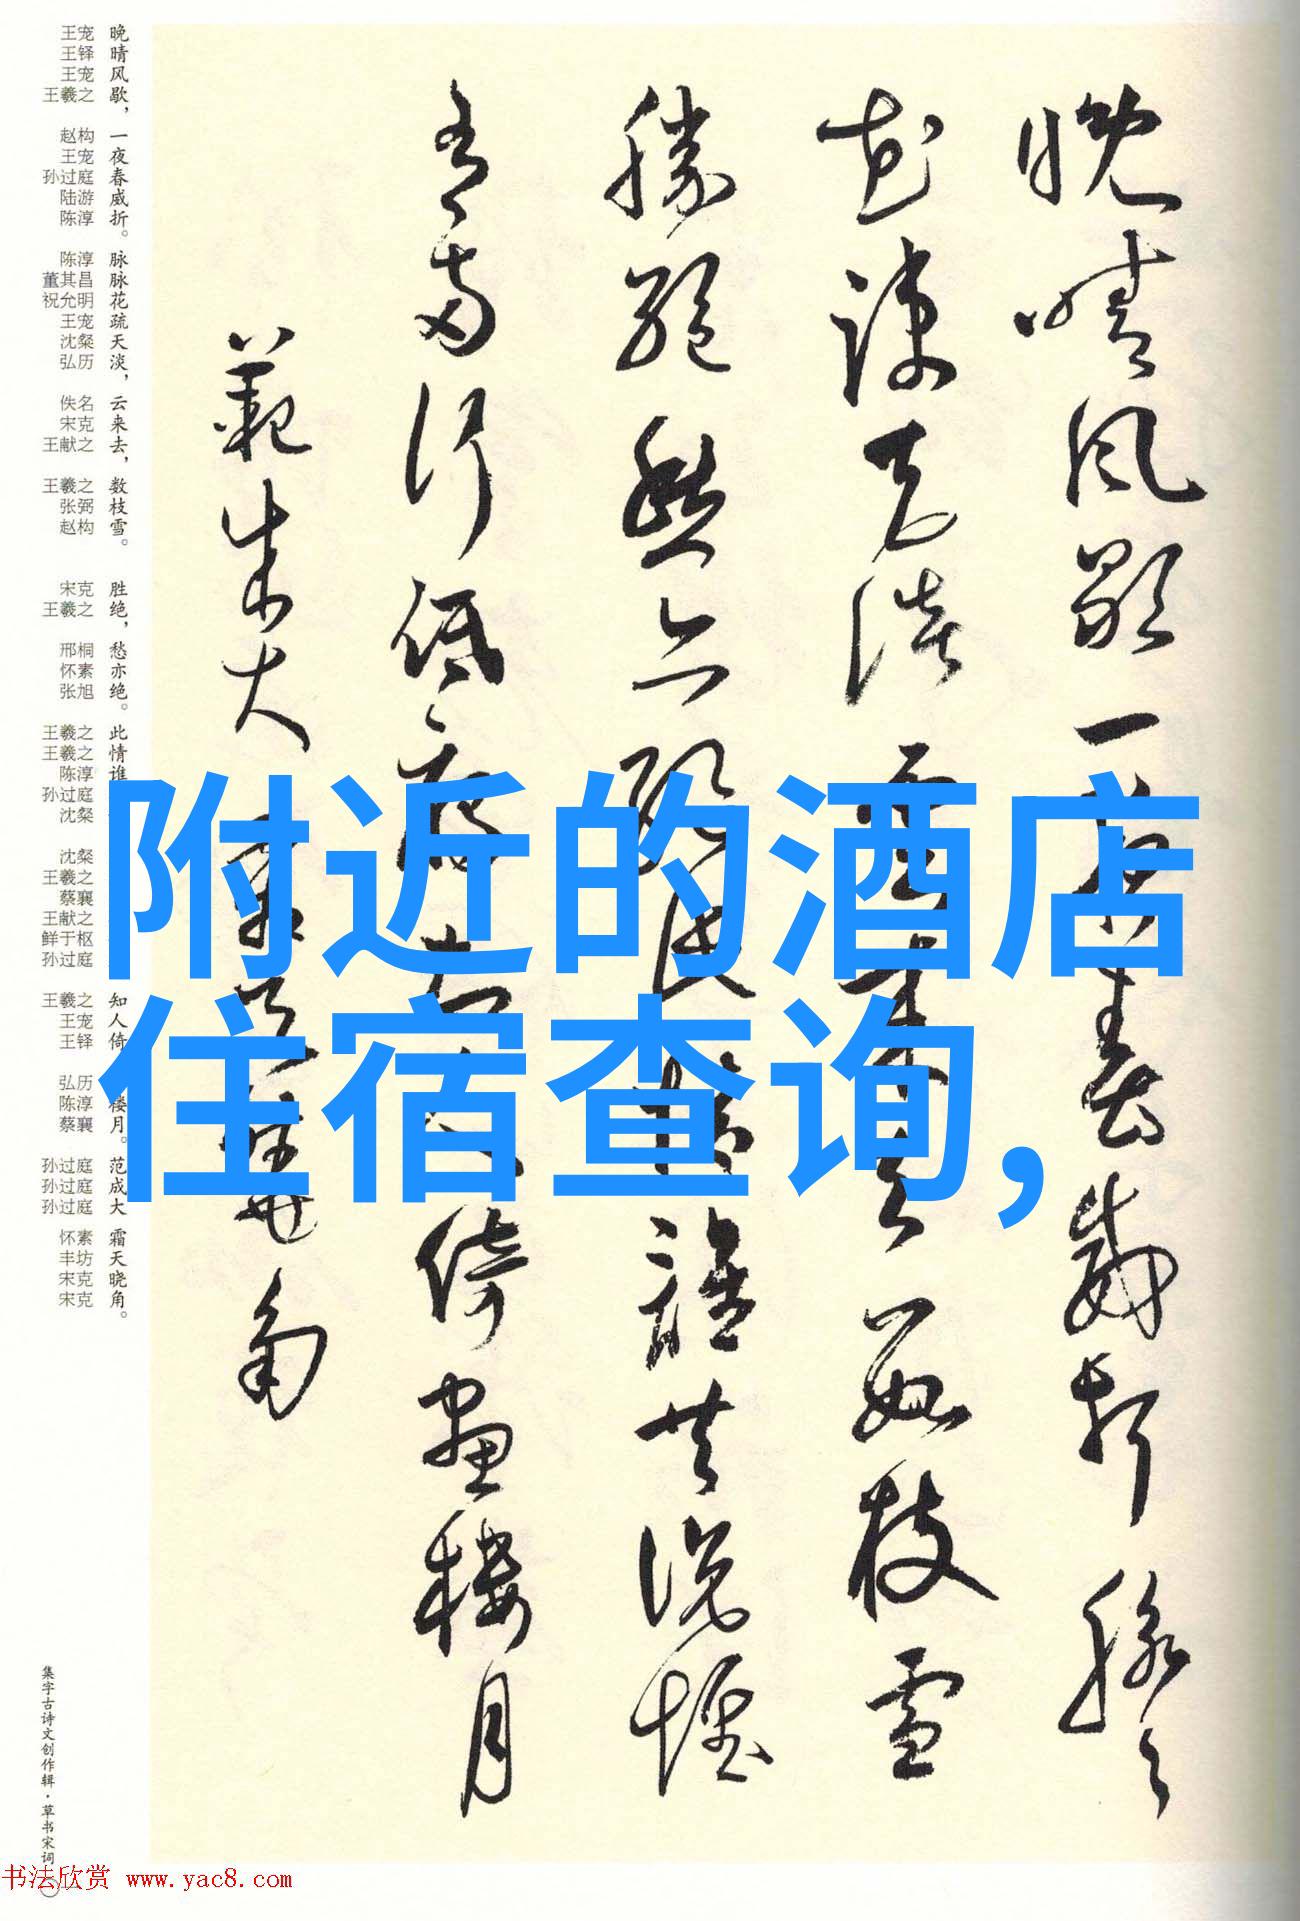 晚晴风歇一夜春威折脉々
花疏天淡云来去数枝雪
胜绝愁亦绝此情谁共说惟
有两行低雁知人倚画楼月
范成大霜天晓角
附近的酒店
住宿查询,
晚晴风歇，一夜春威折。脉脉花疏天淡，云来去，数枝雪。胜绝，愁亦绝。此情谁知人倚楼月。范成大霜天晓角。
王宠 王铎 王宠 王羲之 赵构 王宠 孙过庭 陆游 陈淳 陈淳 董其昌 祝允明 王宠 沈粲 弘历 佚名 宋克 王献之 王羲之 张弼 赵构 宋克 王羲之 邢桐 怀素 张旭 王羲之 王羲之 陈淳 孙过庭 沈粲 沈粲 王羲之 蔡襄 王献之 鲜于枢 孙过庭 王羲之 王宠 王铎 弘历 陈淳 蔡襄 孙过庭 孙过庭 孙过庭 怀素 丰坊 宋克 宋克
集字古诗文创作辑·草书宋词
书法欣赏 www.yac8.com